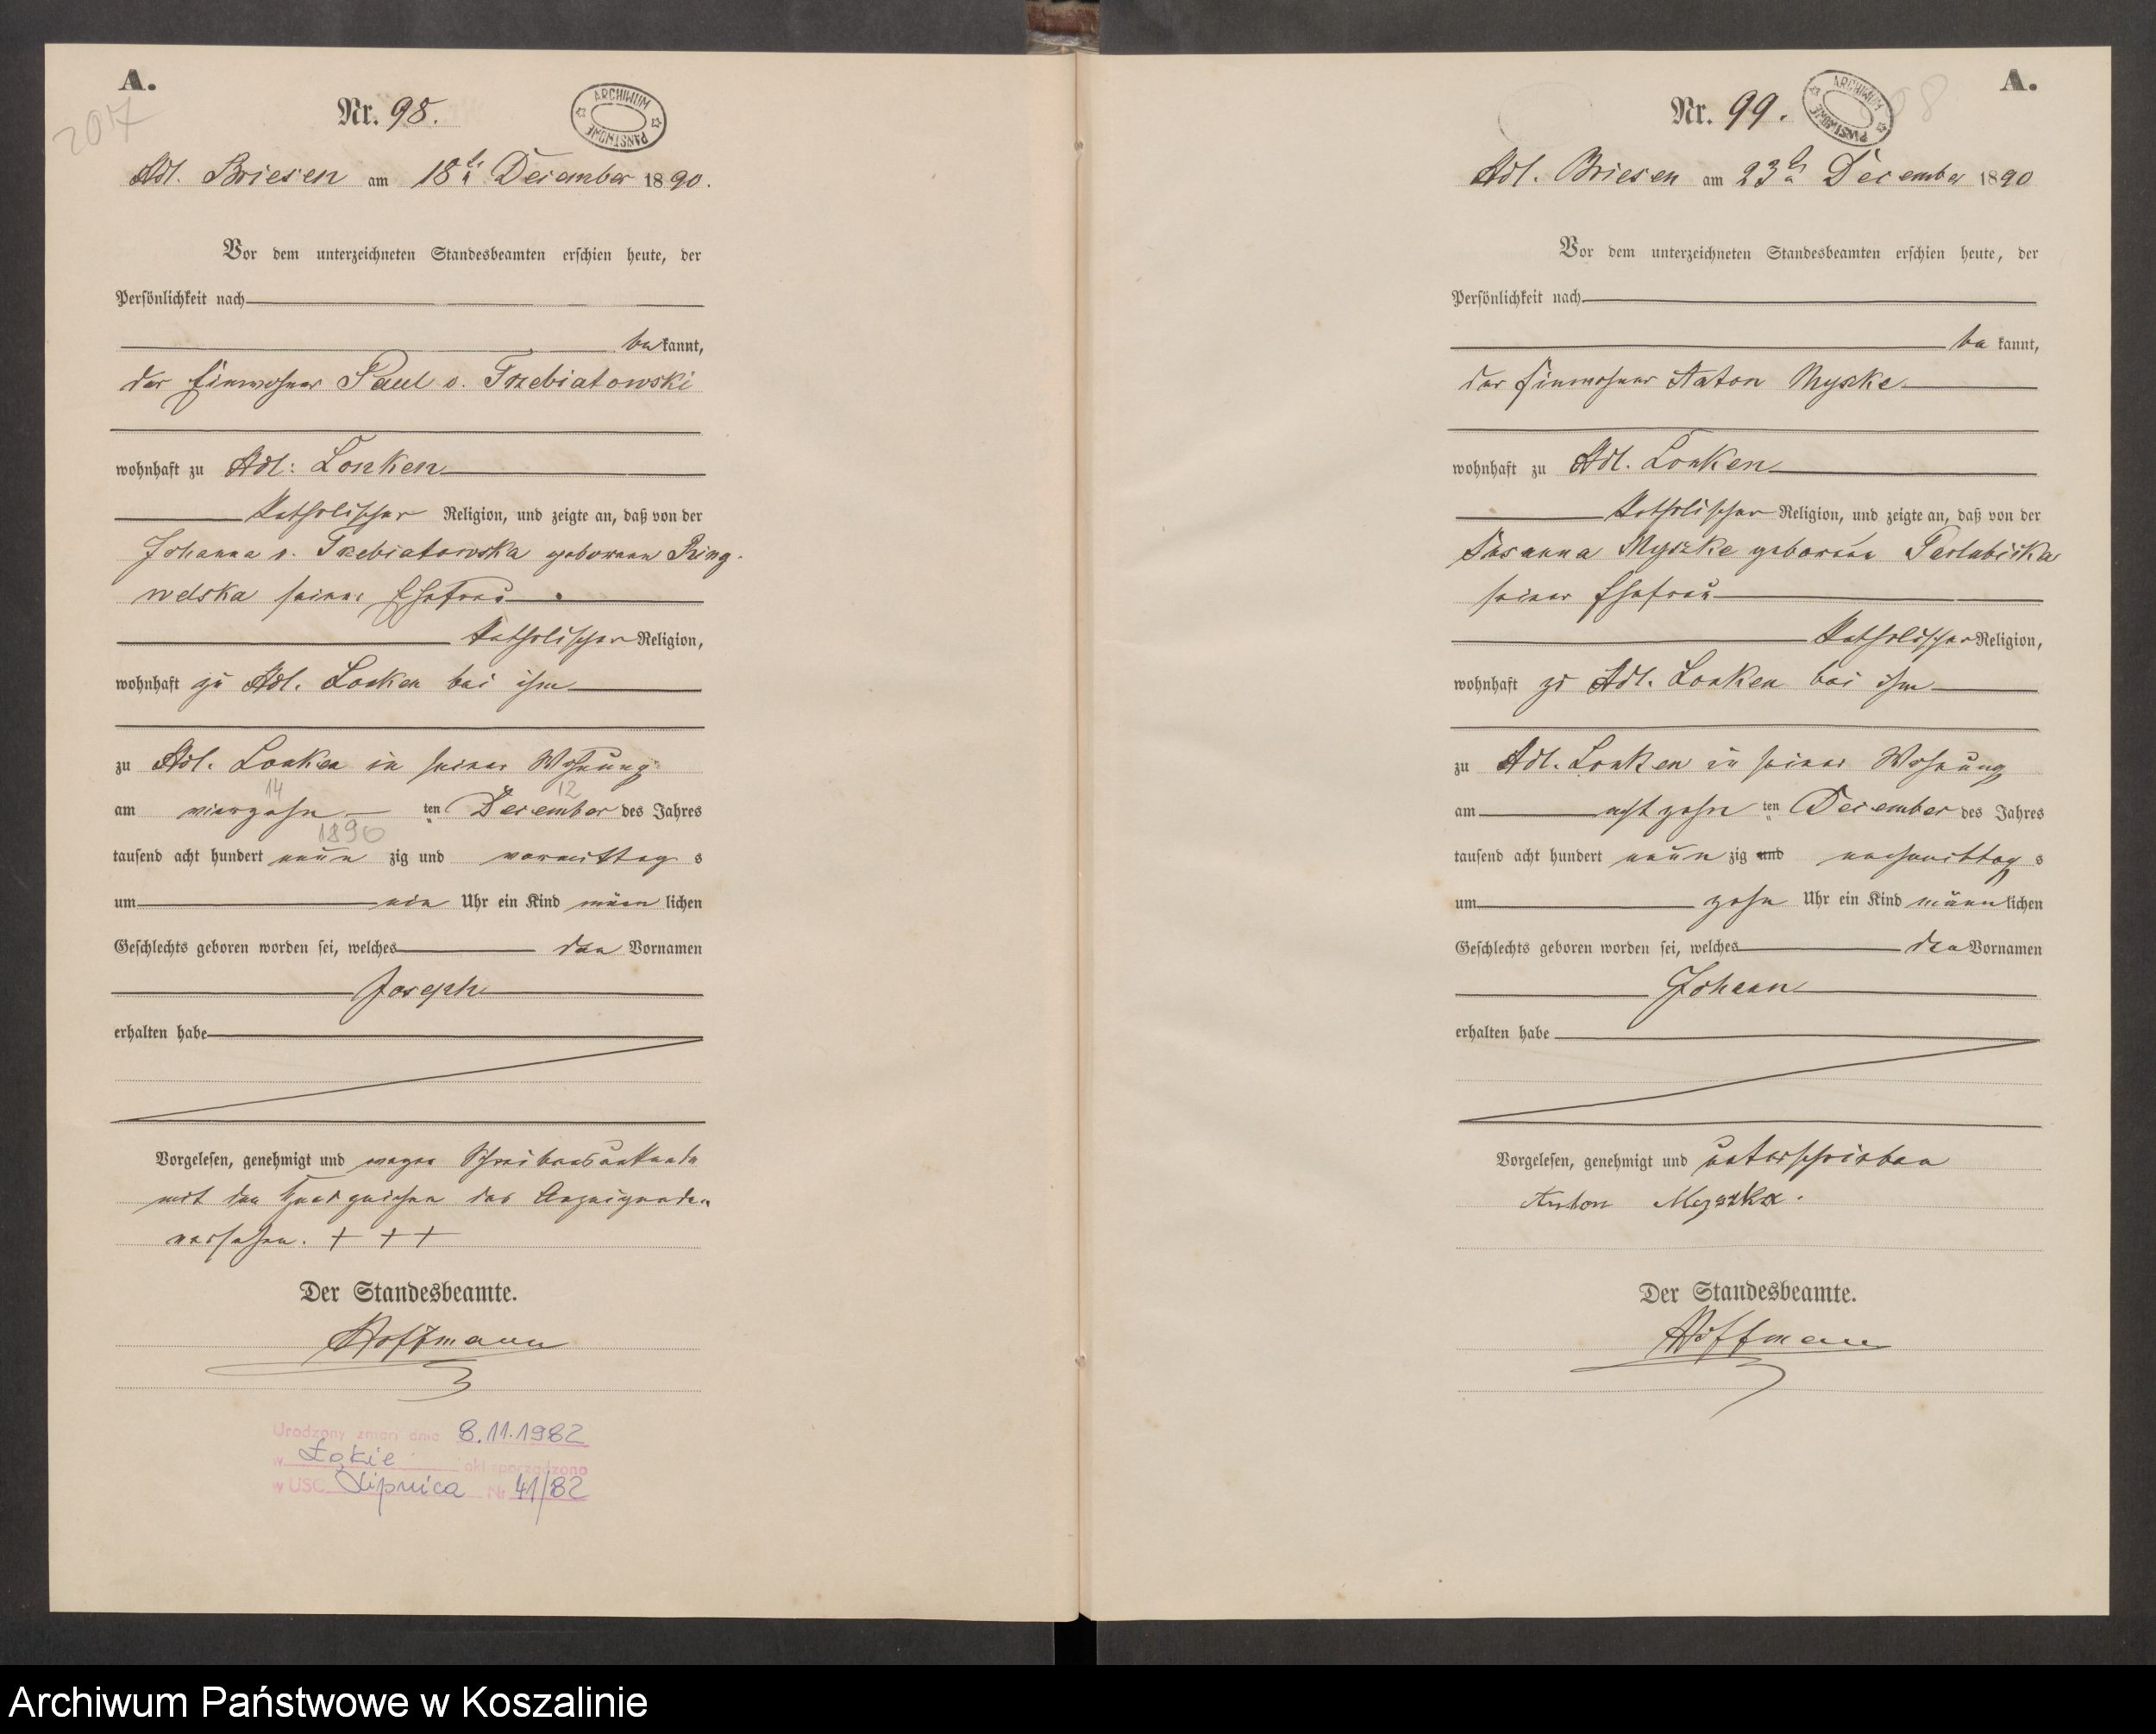 A.
207
Nr. 98.
ARCHIWUM PAŃSTWOWE
Adl. Briesen am 18ten December 1890.
Vor dem unterzeichneten Standesbeamten erschien heute, der
Persönlichkeit nach
bekannt,
der Einwohner Paul v. Trzebiatowski
wohnhaft zu Adl. Lonken
katholischer Religion, und zeigte an, daß von der
Johanna v. Trzebiatowska geborenen Ring-
welska seiner Ehefrau
katholischer Religion,
wohnhaft zu Adl. Lonken bei ihm
zu Adl. Lonken in seiner Wohnung
14 12
am vierzehn ten December des Jahres
1890
tausend acht hundert neun zig und vormittag s
um ein Uhr ein Kind männ lichen
Geschlechts geboren worden sei, welches den Vornamen
Joseph
erhalten habe
Vorgelesen, genehmigt und wegen Schreibensunkunde
mit den Handzeichen des Anzeigenden
versehen. + + +
Der Standesbeamte.
Hoffmann
Urodzony zmarł dnia 8.11.1982
w Łąkie akt sporządzono
w USC Lipnica Nr 41/82
A.
Nr. 99.
ARCHIWUM PAŃSTWOWE
Adl. Briesen am 23ten December 1890
Vor dem unterzeichneten Standesbeamten erschien heute, der
Persönlichkeit nach
be kannt,
der Einwohner Anton Myszke
wohnhaft zu Adl. Lonken
katholischer Religion, und zeigte an, daß von der
Susanna Myszke geborene
seiner Ehefrau
katholischer Religion,
wohnhaft zu Adl. Lonken bei ihm
zu Adl. Lonken in seiner Wohnung
am achtzehn ten December des Jahres
tausend acht hundert neun zig und nachmittag s
um zehn Uhr ein Kind männlichen
Geschlechts geboren worden sei, welches den Vornamen
Johann
erhalten habe
Vorgelesen, genehmigt und unterschrieben
Anton Myszka.
Der Standesbeamte.
Hoffmann
Archiwum Państwowe w Koszalinie